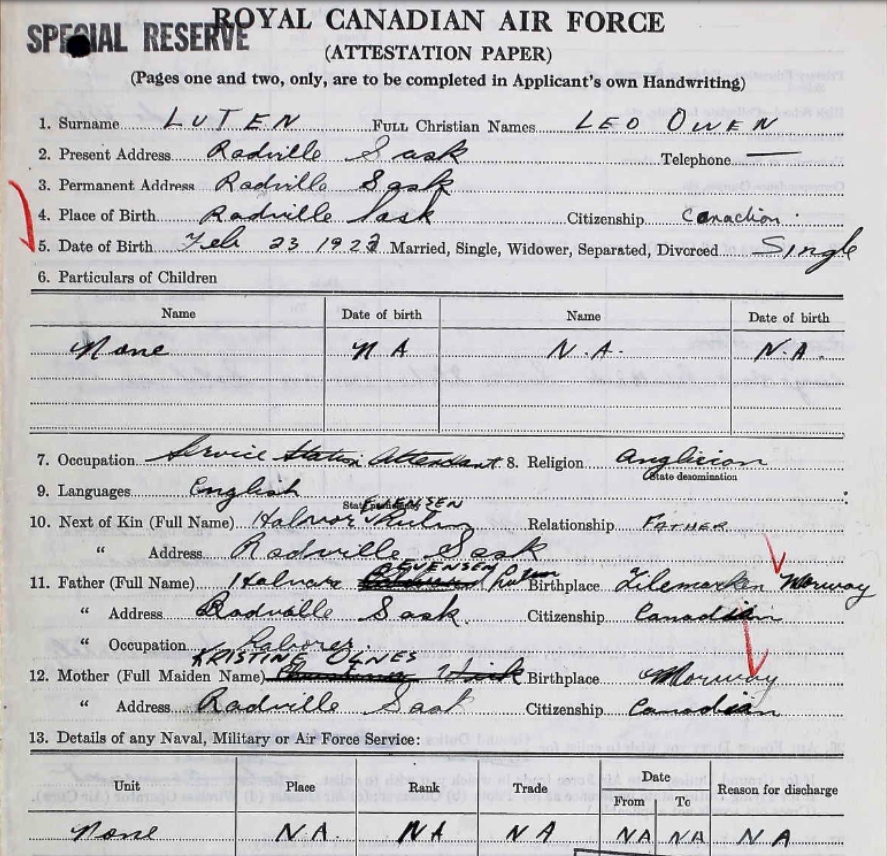 ROYAL CANADIAN AIR FORCE
SPECIAL RESERVE
(ATTESTATION PAPER)
(Pages one and two, only, are to be completed in Applicant's own Handwriting)
1. Surname LUTEN FULL Christian Names LEO OWEN
2. Present Address Radville Sask Telephone —
3. Permanent Address Radville Sask
4. Place of Birth Radville Sask Citizenship Canadian
5. Date of Birth Feb 23 1922 Married, Single, Widower, Separated, Divorced Single
6. Particulars of Children
Name Date of birth Name Date of birth
None N A N.A. N.A.
7. Occupation Service Station Attendant 8. Religion Anglician
State denomination
9. Languages English
10. Next of Kin (Full Name) Halvor Relationship FATHER
" Address Radville Sask
11. Father (Full Name) Halvor Birthplace Norway
" Address Radville Sask. Citizenship Canadian
" Occupation Laborer
KRISTINE OLNES
12. Mother (Full Maiden Name) Birthplace Norway
" Address Radville Sask Citizenship Canadian
13. Details of any Naval, Military or Air Force Service:
Unit Place Rank Trade Date Reason for discharge
From To
None N.A. NA N A NA NA N A